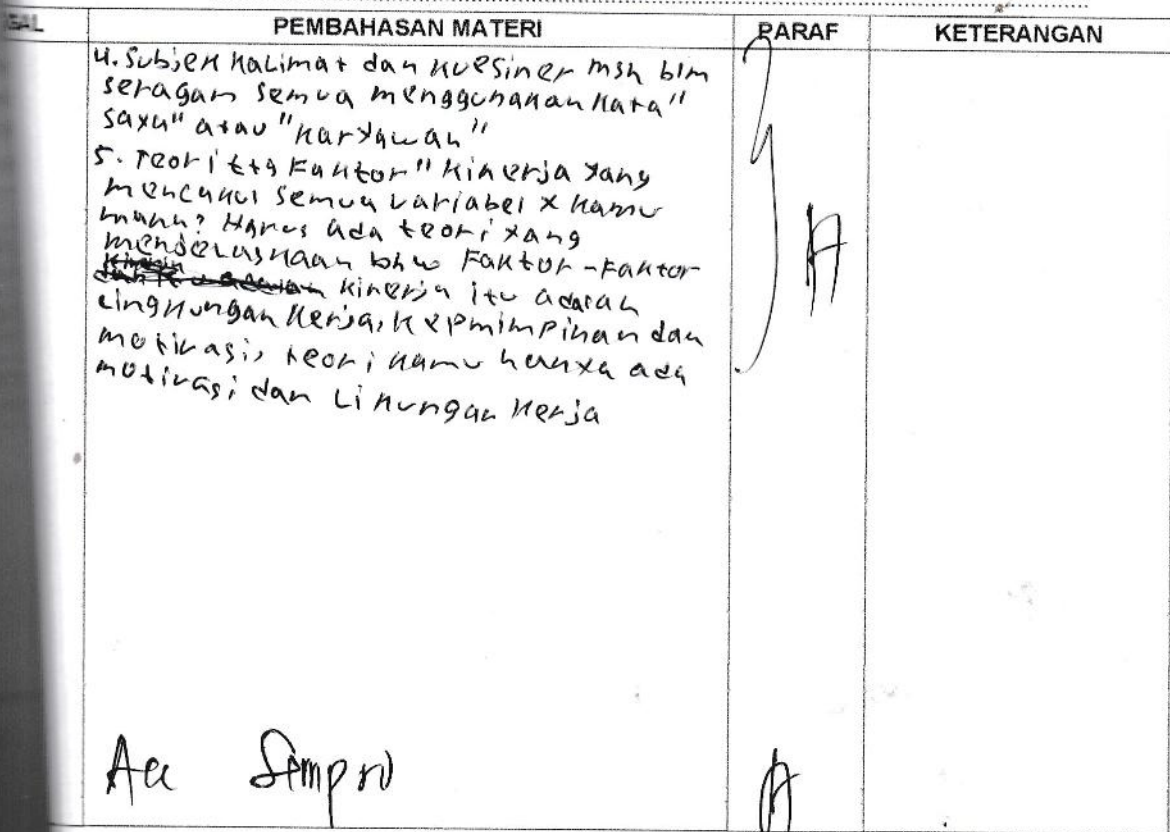 PEMBAHASAN MATERI
PARAF
KETERANGAN
4. Subjek kalimat dan kuesiner msh blm
seragam semua menggunakan kata"
saya" atau "karyawan"
5. Teori ttg Faktor" kinerja yang
mencakup semua variabel x kamu
mana? Harus ada teori yang
menjelaskaan bhw Faktor-Faktor
kinerja itu adalah
lingkungan kerja, kepmimpinan dan
motivasi, teori kamu hanya ada
motivasi dan Linungan kerja
Acc Sempro